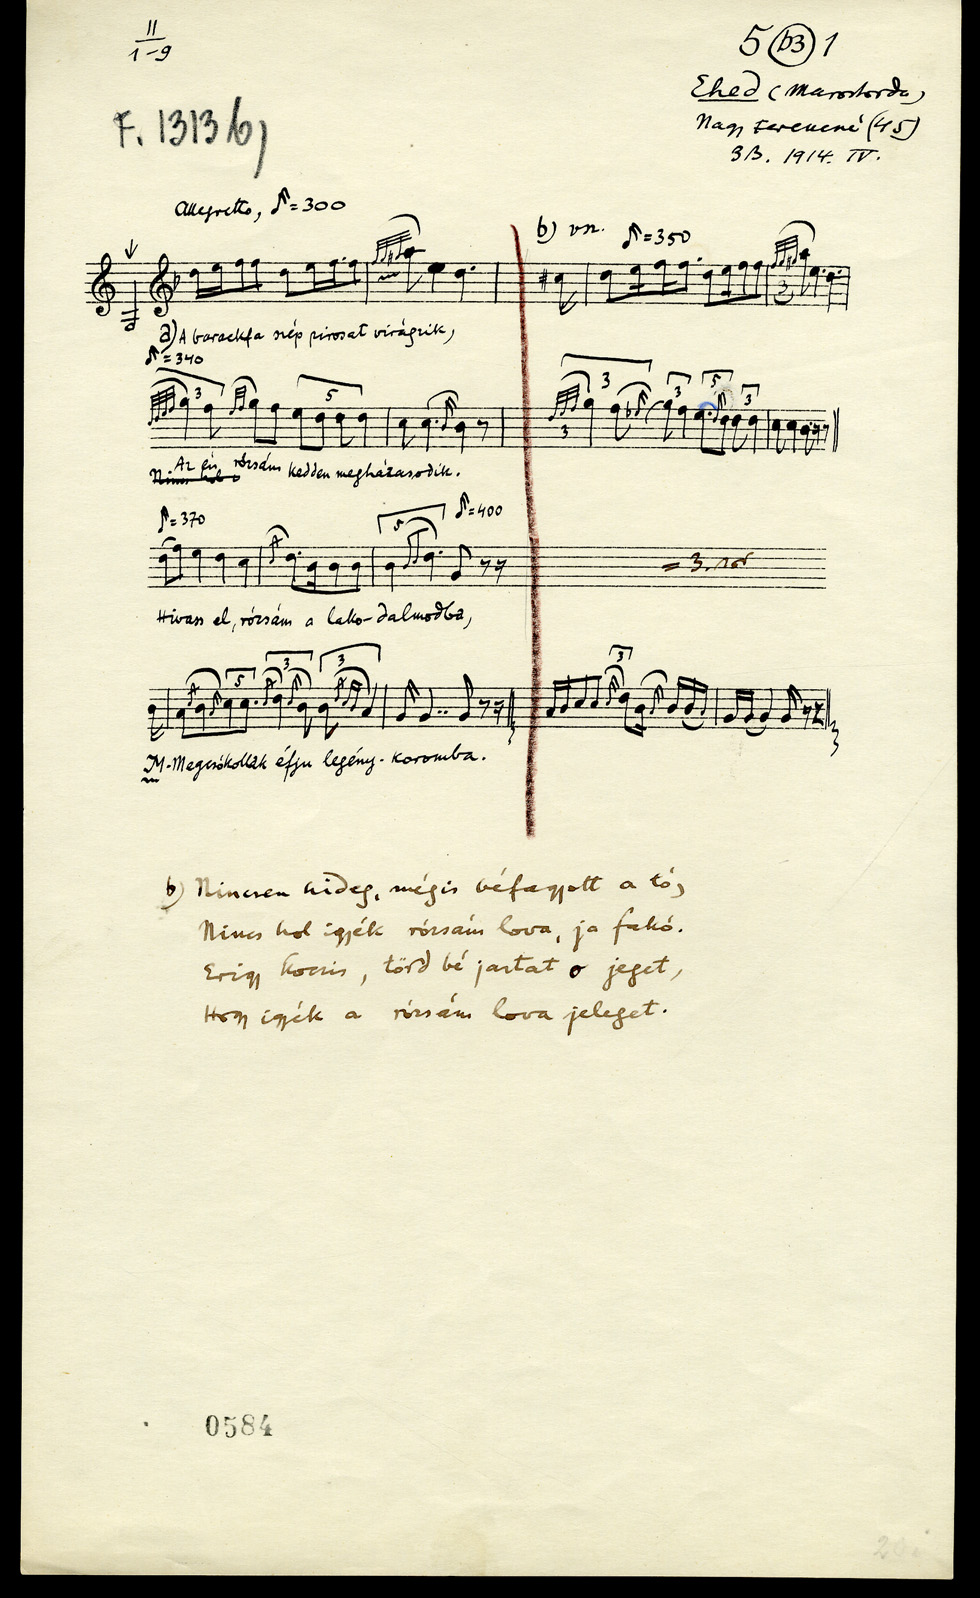 II
1-9
5 (b3) 1
Ehed (Marostorda)
Nagy Ferencné (45)
BB. 1914. IV.
F. 1313 b)
Allegretto, ♪=300
b) vsz. ♪=350
a) A barackfa szép pirosat virágzik,
♪=340
3 5 3 3 3 5 3
Az én rózsám kedden megházasodik.
Nincs hol
♪=370 5 ♪=400
= 3. sor
Hivass el, rózsám a lako-dalmodba,
5 3 3 3
M-Megcsókollak éfju legény-koromba.
b) Nincsen hideg, mégis béfagyott a tó,
Nincs hol igyék rózsám lova, ja fakó.
Erigy kocsis, törd bé jaztat o jeget,
Hogy igyék a rózsám lova jeleget.
0584